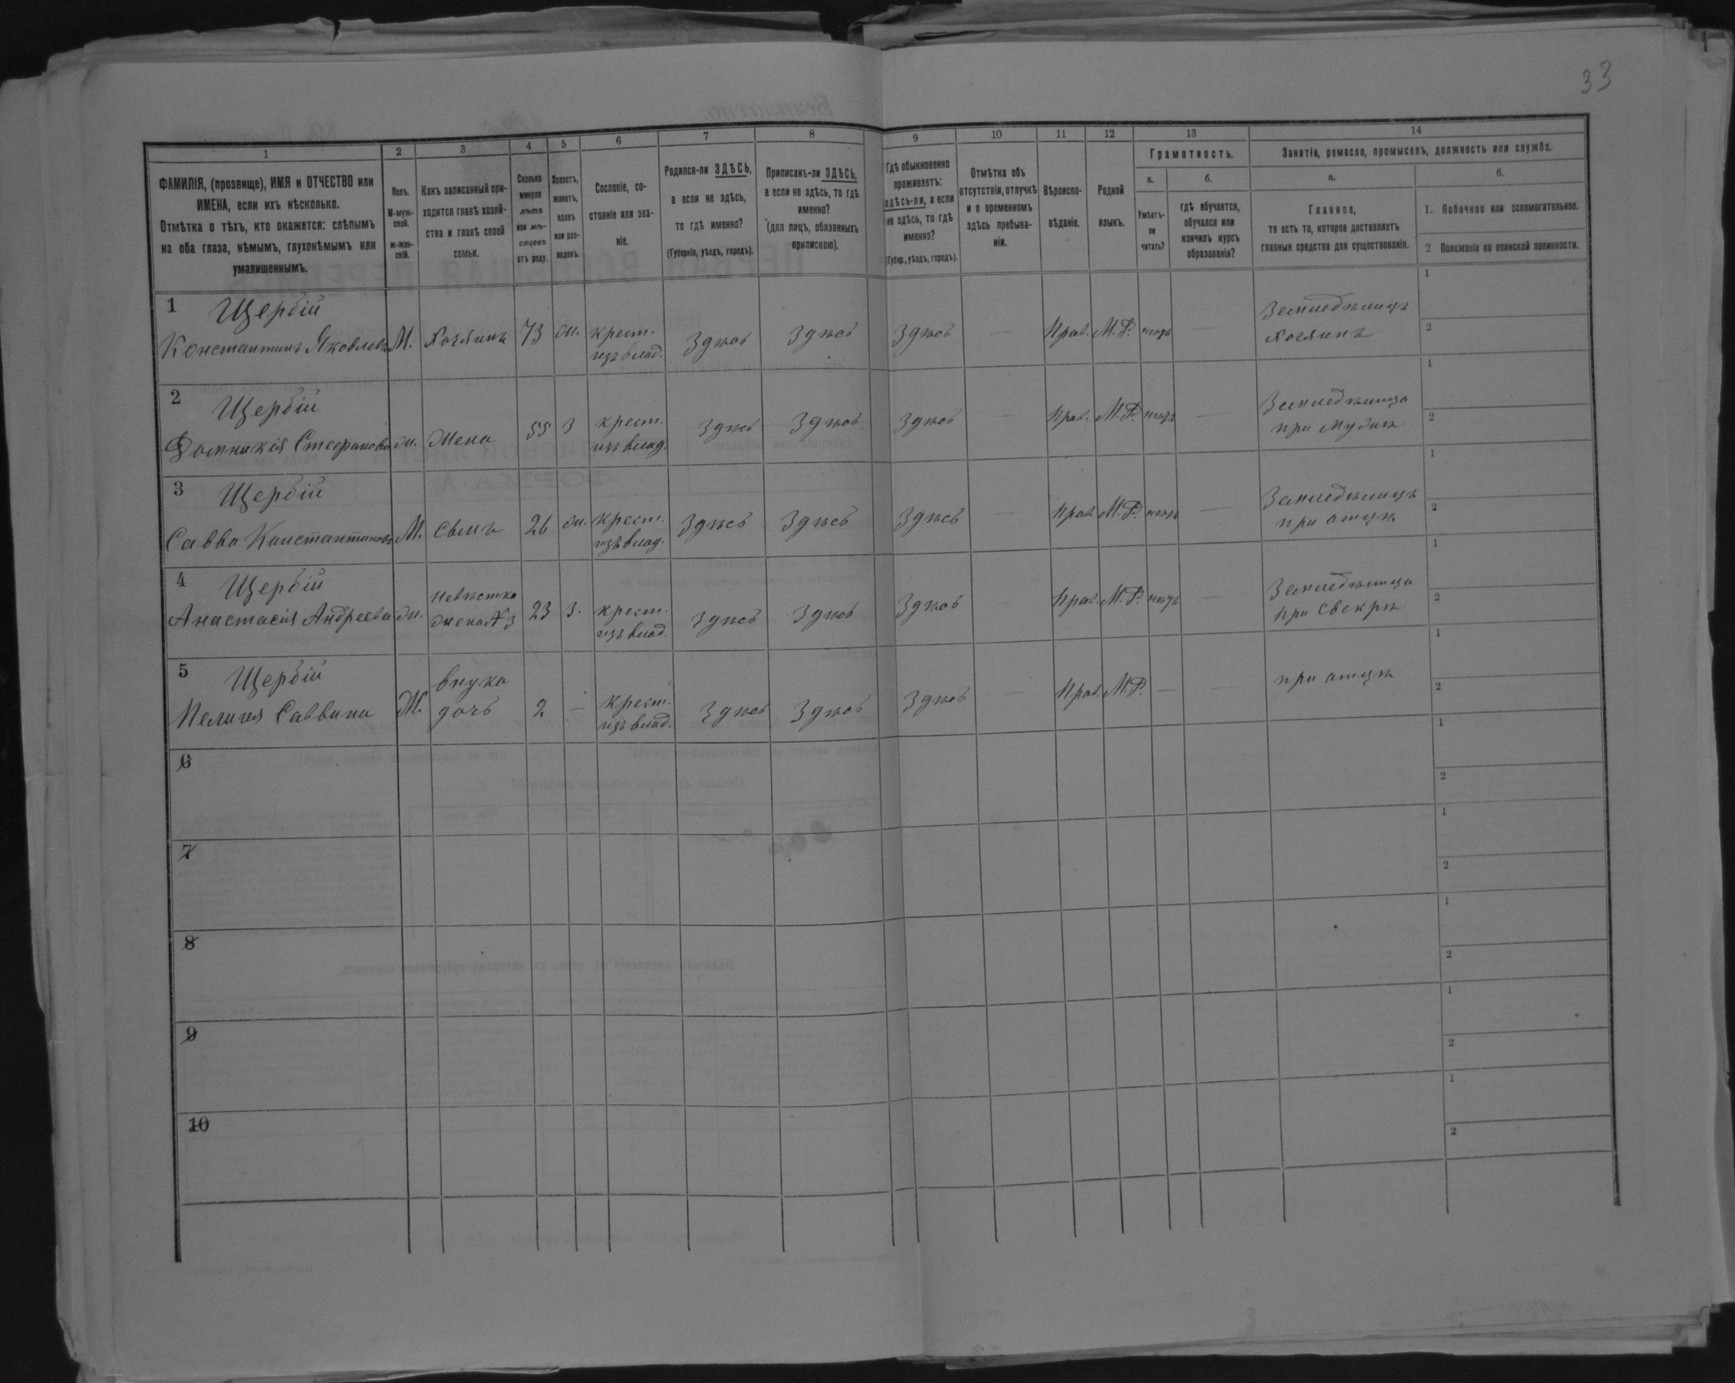 33
1 2 3 4 5 6 7 8 9 10 11 12 13 14
ФАМИЛІЯ, (прозвище), ИМЯ и ОТЧЕСТВО или
ИМЕНА, если ихъ нѣсколько.
Отмѣтка о тѣхъ, кто окажется: слѣпымъ
на оба глаза, нѣмымъ, глухонѣмымъ или
умалишеннымъ.
Полъ.
М-муж-
ской.
ж-жен-
скій.
Какъ записанный при-
ходится главѣ хозяй-
ства и главѣ своей
семьи.
Сколько
минуло
лѣтъ
или мѣ-
сяцевъ
отъ роду.
Холостъ,
женатъ,
вдовъ
или раз-
веденъ.
Сословіе, со-
стояніе или зва-
ніе.
Родился-ли ЗДѢСЬ,
а если не здѣсь,
то гдѣ именно?
(Губернія, уѣздъ, городъ).
Приписанъ-ли ЗДѢСЬ,
а если не здѣсь, то гдѣ
именно?
(для лицъ, обязанныхъ
припискою).
Гдѣ обыкновенно
проживаетъ:
здѣсь-ли, а если
не здѣсь, то гдѣ
именно?
(Губер., уѣздъ, городъ).
Отмѣтка объ
отсутствіи, отлучкѣ
и о временномъ
здѣсь пребыва-
ніи.
Вѣроиспо-
вѣданіе.
Родной
языкъ.
Грамотность.
а.
Умѣетъ-
ли
читать?
б.
гдѣ обучается,
обучался или
кончилъ курсъ
образованія?
Занятіе, ремесло, промыселъ, должность или служба.
а.
Главное,
то есть то, которое доставляетъ
главныя средства для существованія.
б.
1. Побочное или вспомогательное.
2 Положеніе по воинской повинности.
1 Щербій
Константинъ Яковлевъ М. Хозяинъ 73 ж. крест. Здѣсь Здѣсь Здѣсь — Прав. М. Р. нѣтъ — Земледѣлецъ 1
изъ влад. Хозяинъ 2
2 Щербій
Стефанова ж. Жена 55 з крест. Здѣсь Здѣсь Здѣсь — Прав. М. Р. нѣтъ — Земледѣлица 1
изъ влад. при мужѣ 2
3 Щербій
Савва Константиновъ М. Сынъ 26 ж. крест. Здѣсь Здѣсь Здѣсь — Прав. М. Р. нѣтъ — Земледѣлецъ 1
изъ влад. при отцѣ 2
4 Щербій
Анастасія Андреева ж. невѣстка 23 з. крест. Здѣсь Здѣсь Здѣсь — Прав. М. Р. нѣтъ — Земледѣлица 1
жена №3 изъ влад. при свекрѣ 2
5 Щербій
Пелагея Саввина М. внука 2 — крест. Здѣсь Здѣсь Здѣсь — Прав. М. Р. — — при отцѣ 1
дочь изъ влад. 2
6 1
2
7 1
2
8 1
2
9 1
2
10 1
2